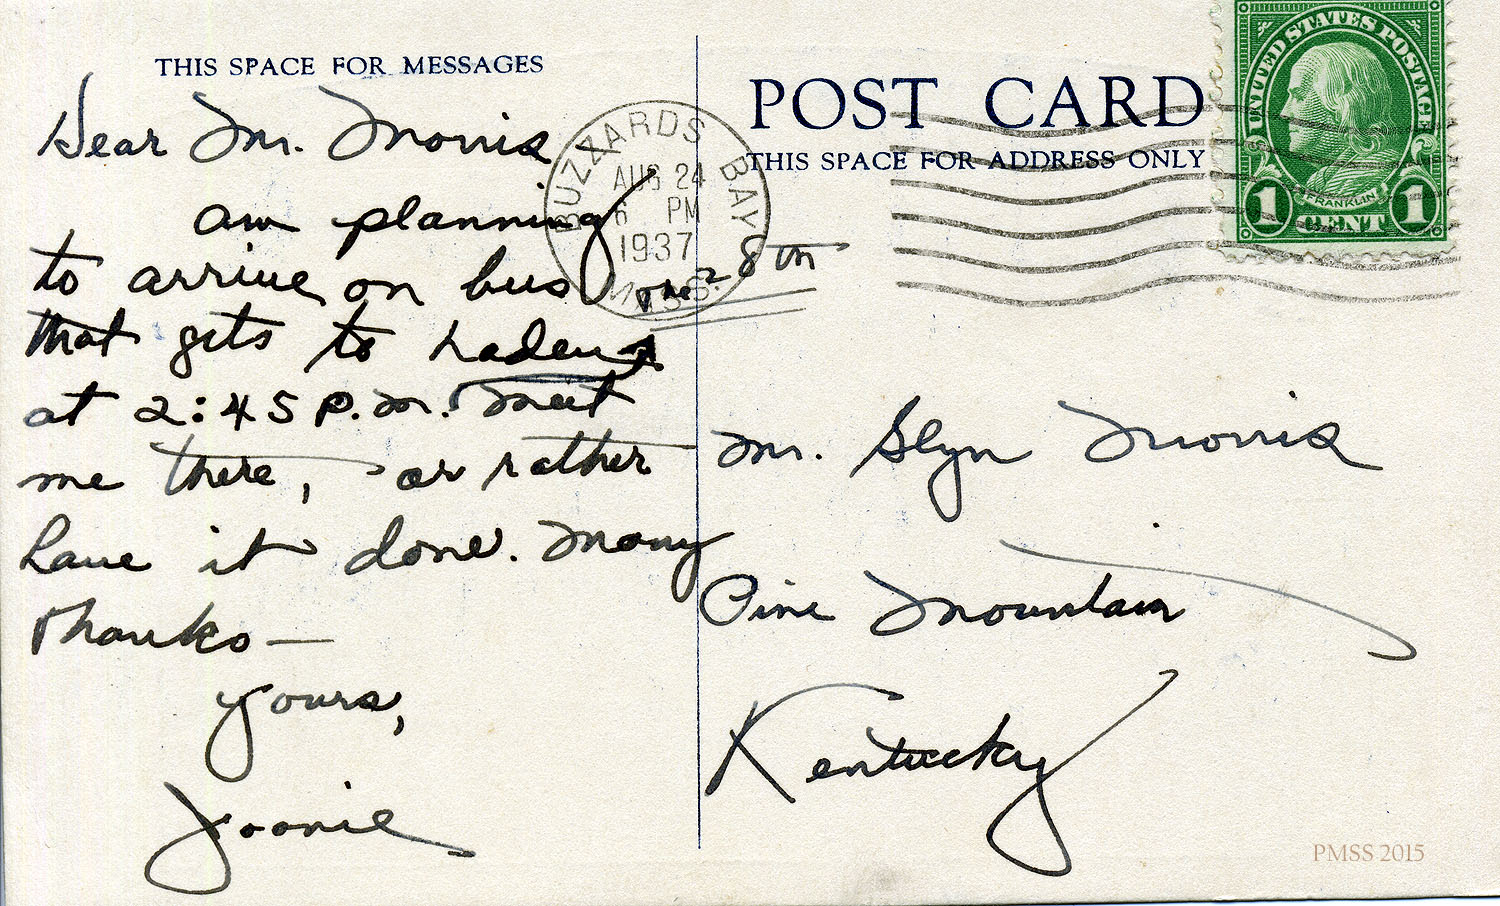 THIS SPACE FOR MESSAGES
Dear Mr. Morris
am planning
to arrive on bus the 28th
that gets to Laden
at 2:45 P.M. Meet
me there, or rather
have it done. Many
thanks—
yours,
Joonie
BUZZARDS BAY
AUG 24
6 PM
1937
MASS.
POST CARD
THIS SPACE FOR ADDRESS ONLY
UNITED STATES POSTAGE
FRANKLIN
1 CENT 1
Mr. Glyn Morris
Pine Mountain
Kentucky
PMSS 2015